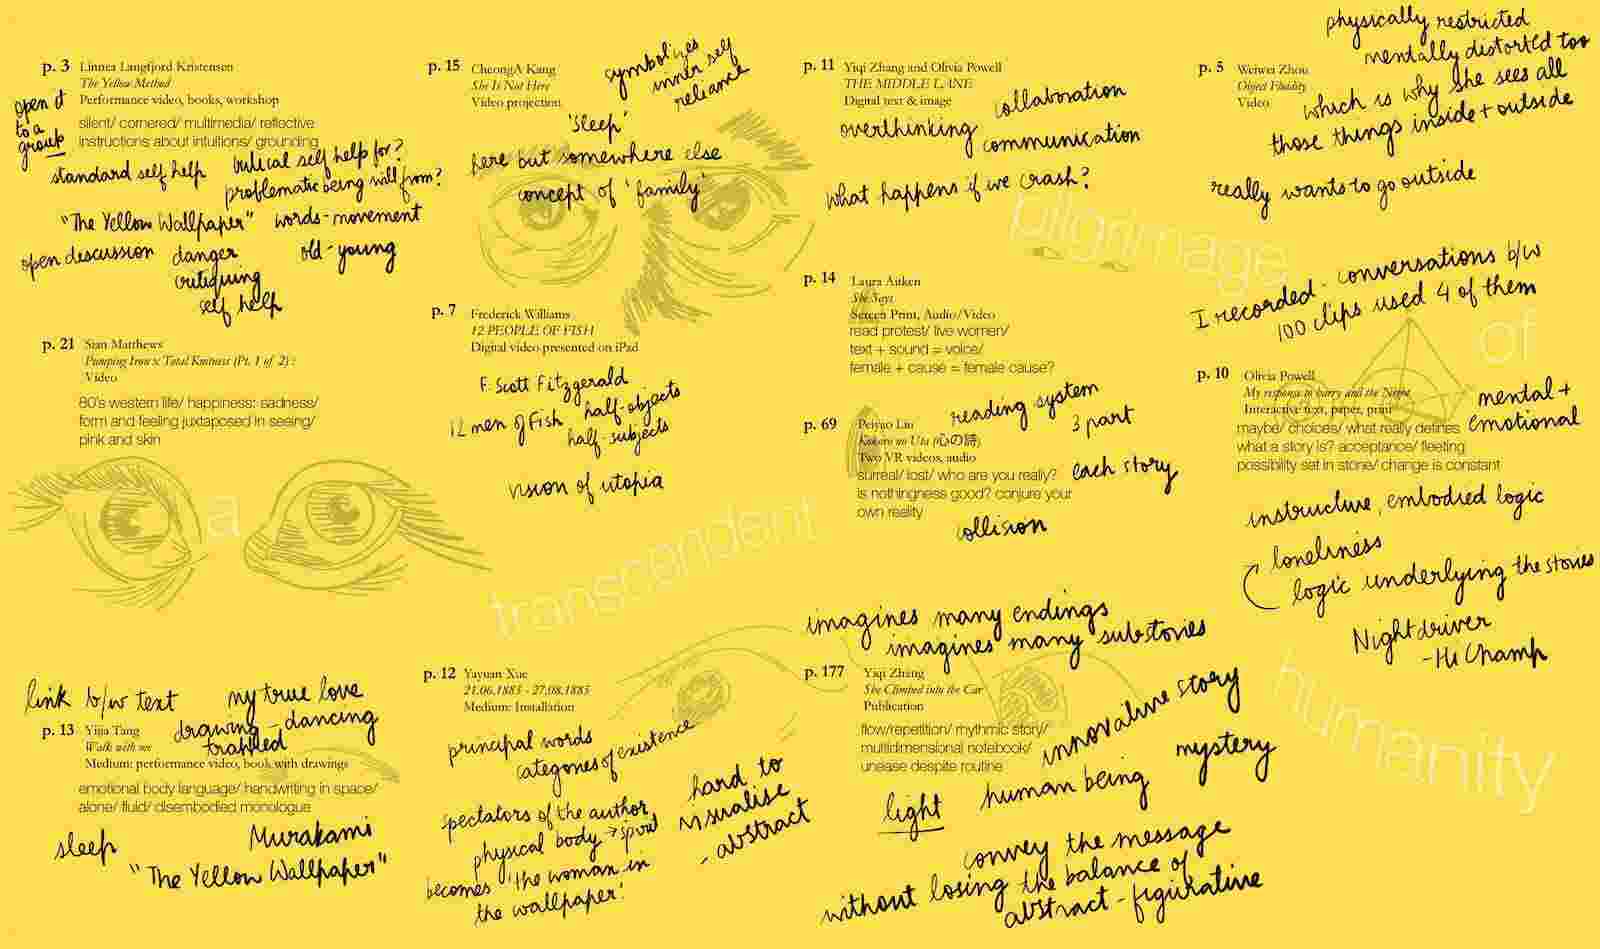 p. 3 Linnea Langfjord Kristensen
The Yellow Method
Performance video, books, workshop
silent/ cornered/ multimedia/ reflective
instructions about intuitions/ grounding
open it
to a
group
standard self help
critical self help for?
problematic being will from?
"The Yellow Wallpaper"
words - movement
open discussion
danger
old - young
critiquing
self help
p. 21 Sian Matthews
Pumping Iron x Total Knitness (Pt. 1 of 2) :
Video
80's western life/ happiness: sadness/
form and feeling juxtaposed in seeing/
pink and skin
a
link b/w text
my true love
drawing - dancing
trapped
p. 13 Yijia Tang
Walk with me
Medium: performance video, book with drawings
emotional body language/ handwriting in space/
alone/ fluid/ disembodied monologue
sleep
Murakami
"The Yellow Wallpaper"
p. 15 CheongA Kang
She Is Not Here
Video projection
symbolizes
inner self
reliance
'sleep'
here but somewhere else
concept of 'family'
p. 7 Frederick Williams
12 PEOPLE OF FISH
Digital video presented on iPad
F. Scott Fitzgerald
12 men of Fish
half-objects
half-subjects
vision of utopia
transcendent
p. 12 Yayuan Xue
21.06.1885 - 27.08.1885
Medium: Installation
principal words
categories of existence
spectators of the author
physical body →
becomes 'the woman in
the wallpaper'
hard to
visualise
- abstract
p. 11 Yiqi Zhang and Olivia Powell
THE MIDDLE LANE
Digital text & image
collaboration
overthinking
communication
what happens if we crash?
pilgrimage
p. 14 Laura Aitken
She Says
Screen Print, Audio/Video
read protest/ live women/
text + sound = voice/
female + cause = female cause?
p. 69 Peiyao Liu
Kokoro no Uta (心の詩)
Two VR videos, audio
surreal/ lost/ who are you really?
is nothingness good? conjure your
own reality
reading system
3 part
each story
collision
imagines many endings
imagines many substories
p. 177 Yiqi Zhang
She Climbed into the Car
Publication
flow/repetition/ mythmic story/
multidimensional notebook/
unease despite routine
innovative story
light
human being
mystery
convey the message
without losing the balance of
abstract - figurative
physically restricted
mentally distorted too
which is why she sees all
those things inside + outside
p. 5 Weiwei Zhou
Object Fluidity
Video
really wants to go outside
I recorded - conversations b/w
100 clips used 4 of them
of
p. 10 Olivia Powell
My response to Barry and the Night
Interactive text, paper, print
maybe/ choices/ what really defines
what a story is? acceptance/ fleeting
possibility set in stone/ change is constant
mental +
emotional
instructive, embodied logic
loneliness
logic underlying the stories
Nightdriver
humanity